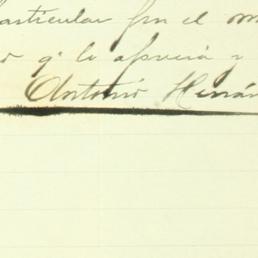 particular por el
q. lo aprecia y
Antonio Hernán